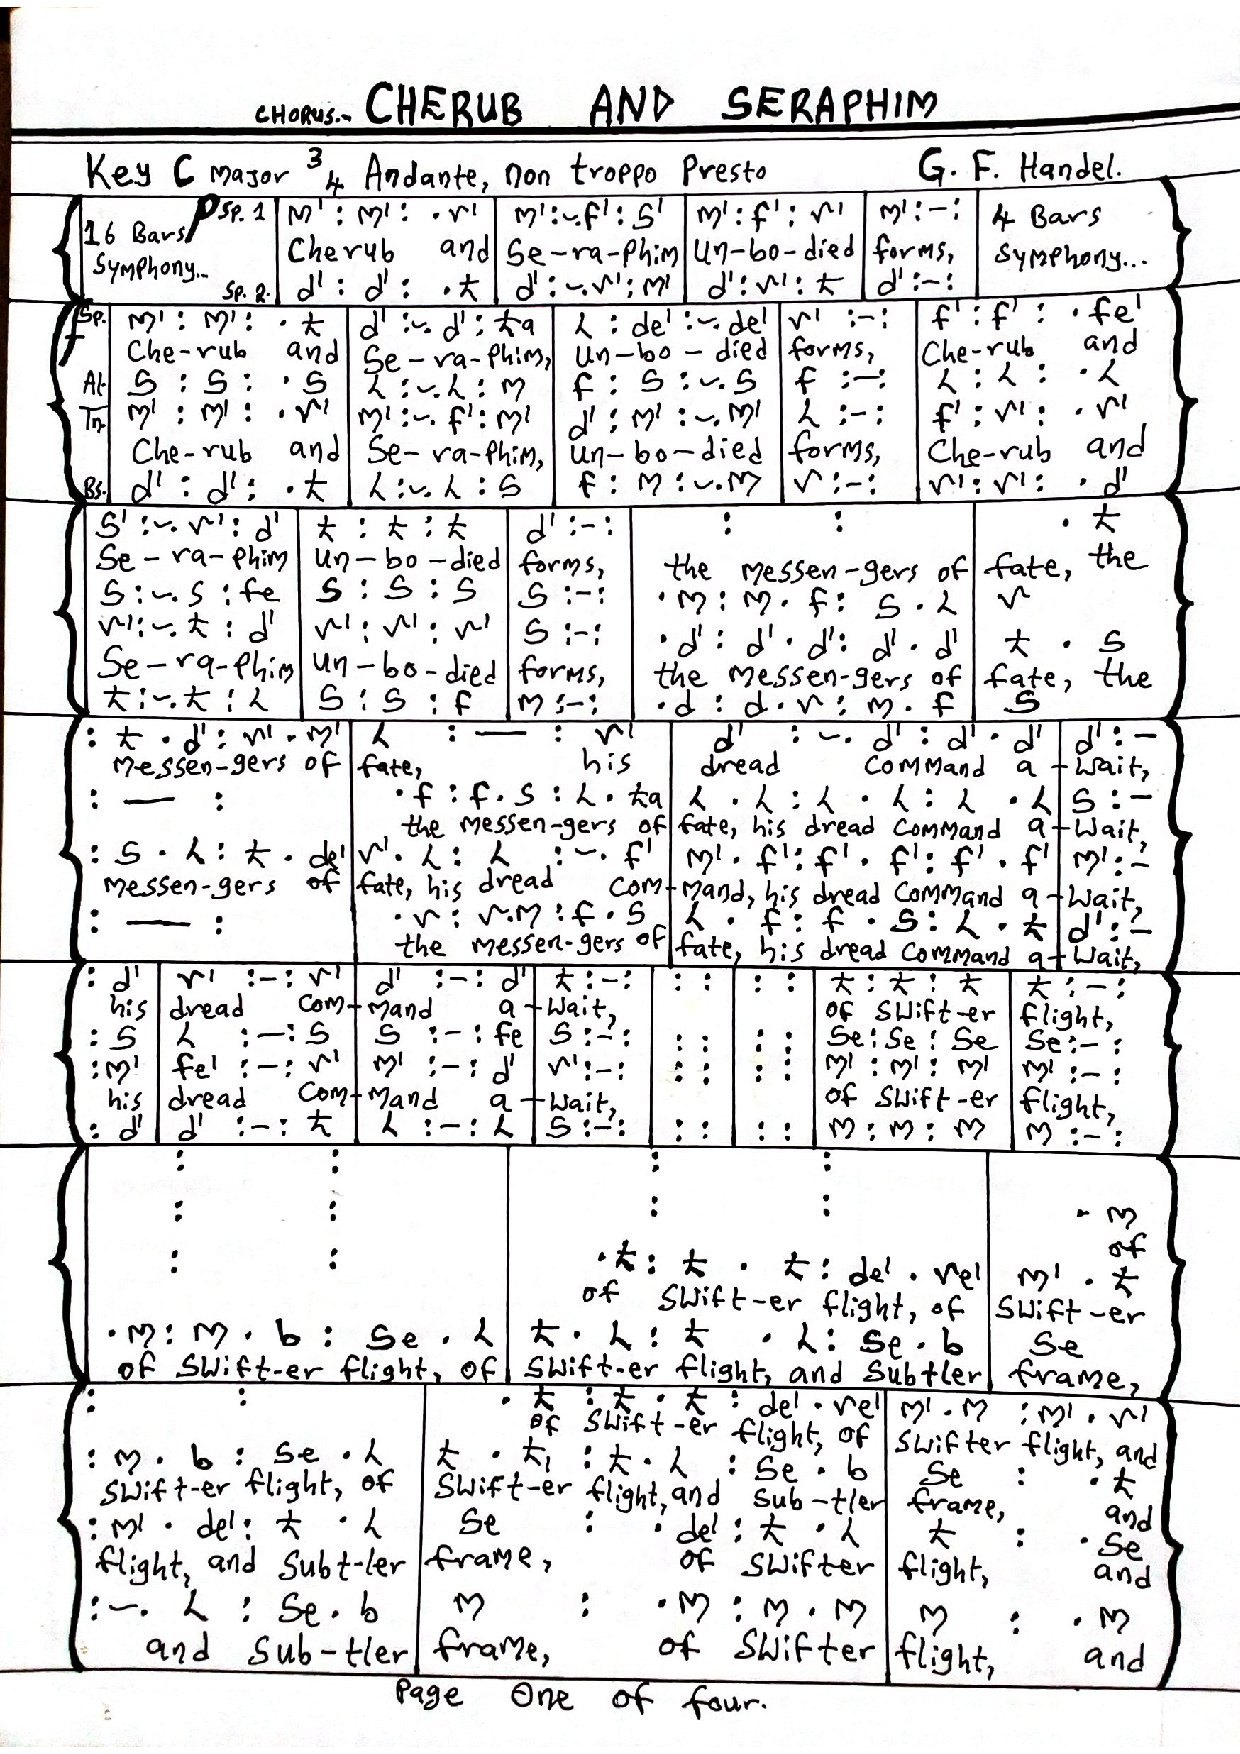 CHORUS.~ CHERUB AND SERAPHIM
Key C Major 3/4 Andante, non troppo Presto G. F. Handel.
16 Bars Symphony... p Sp. 1 | m' : m' : . r' | m' :-. f' : s' | m' : f' : r' | m' : - : | 4 Bars Symphony...
Cherub and | Se-ra-phim | Un-bo-died | forms,
Sp. 2. d' : d' : . t | d' :-. r' : m' | d' : r' : t | d' : - :
f Sp. m' : m' : . t | d' :-. d' : ta | l : de' :-. de' | r' : - : | f' : f' : . fe'
Che-rub and | Se-ra-phim, | un-bo-died | forms, | Che-rub and
At s : s : . s | l :-. l : m | f : s :-. s | f : - : | l : l : . l
Tn. m' : m' : . r' | m' :-. f' : m' | d' : m' :-. m' | l : - : | f' : r' : . r'
Che-rub and | Se-ra-phim, | un-bo-died | forms, | Che-rub and
Bs. d' : d' : . t | l :-. l : s | f : m :-. m | r : - : | r' : r' : . d'
s' :-. r' : d' | t : t : t | d' : - : | : : | . t
Se-ra-phim | un-bo-died | forms, | the messen-gers of | fate, the
s :-. s : fe | s : s : s | s : - : | . m : m . f : s . l | r
r' :-. t : d' | r' : r' : r' | s : - : | . d' : d' . d' : d' . d' | t . s
Se-ra-phim | un-bo-died | forms, | the messen-gers of | fate, the
t :-. t : l | s : s : f | m : - : | . d : d . r : m . f | s
: t . d' : r' . m' | l : — : r' | d' :-. d' : d' . d' | d' : -
messen-gers of | fate, his | dread command a-|wait,
: — : | . f : f . s : l . ta | l . l : l . l : l . l | s : -
the messen-gers of | fate, his dread command a-|wait,
: s . l : t . de' | r' . l : l :-. f' | m' . f' : f' . f' : f' . f' | m' : -
messen-gers of | fate, his dread com-|mand, his dread command a-|wait,
: — : | . r : r . m : f . s | l . f : f . s : l . t | d' : -
the messen-gers of | fate, his dread command a-|wait,
: d' | r' : - : r' | d' : - : d' | t : - : | : : | : : | t : t : t | t : - :
his | dread com-|mand a-|wait, | of swift-er | flight,
: s | l : - : s | s : - : fe | s : - : | : : | : : | se : se : se | se : - :
: m' | fe' : - : r' | m' : - : d' | r' : - : | : : | : : | m' : m' : m' | m' : - :
his | dread com-|mand a-|wait, | of swift-er | flight,
: d' | d' : - : t | l : - : l | s : - : | : : | : : | m : m : m | m : - :
: : | : : |
: : | : : | . m
of
: : | . t : t . t : de' . re' | m' . t
of swift-er flight, of | swift-er
. m : m . b : se . l | t . l : t . l : se . b | se
of swift-er flight, of | swift-er flight, and subtler | frame,
: : | . t : t . t : de' . re' | m' . m : m' . r'
of swift-er flight, of | swifter flight, and
: m . b : se . l | t . t, : t . l : se . b | se : . t
swift-er flight, of | swift-er flight, and sub-tler | frame, and
: m' . de' : t . l | se : . de' : t . l | t : . se
flight, and subt-ler | frame, of swifter | flight, and
:-. l : se . b | m : . m : m . m | m : . m
and sub-tler | frame, of swifter | flight, and
Page One of four.